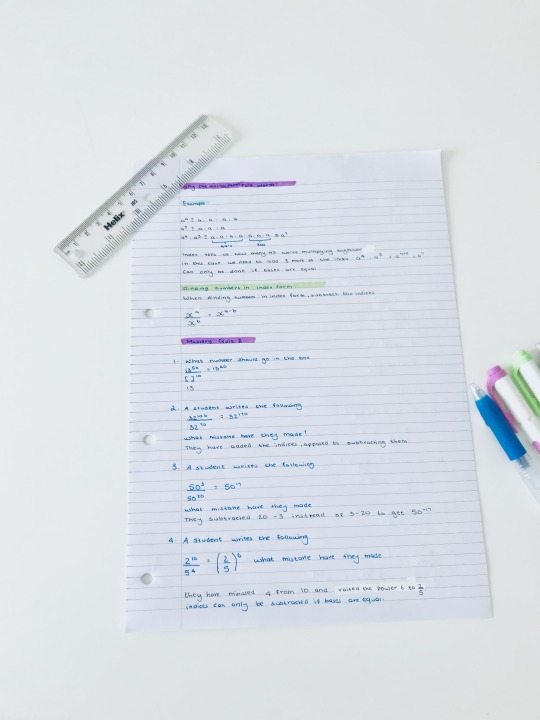 Helix
Why the multiplication rule works!
Example:
a⁴ = a · a · a · a
a³ = a · a · a
a⁴ · a³ = a · a · a · a · a · a · a = a⁷
Index tells us how many
In this case we need to add 3 more to the index a⁴ · a³ = a⁴⁺³ = a⁷
Can only be done if bases are equal
Dividing numbers in index form
When dividing numbers in index form, subtract the indices
xᵃ = xᵃ⁻ᵇ
xᵇ
Mastery Quiz 2
1. What number should go in the box
= 13
[ ]¹⁰
13
2. A student writes the following
= 32¹⁷⁰
32⁷⁰
What mistake have they made?
They have added the indices, opposed to subtracting them
3. A student writes the following
50³ = 50¹⁷
50²⁰
What mistake have they made
They subtracted 20 - 3 instead of 3 - 20 to get 50⁻¹⁷
4. A student writes the following
2¹⁰ = (2/5)⁶ what mistake have they made
5⁴
they have minused 4 from 10 and raised the power 6 to 2/5
indices can only be subtracted if bases are equal.